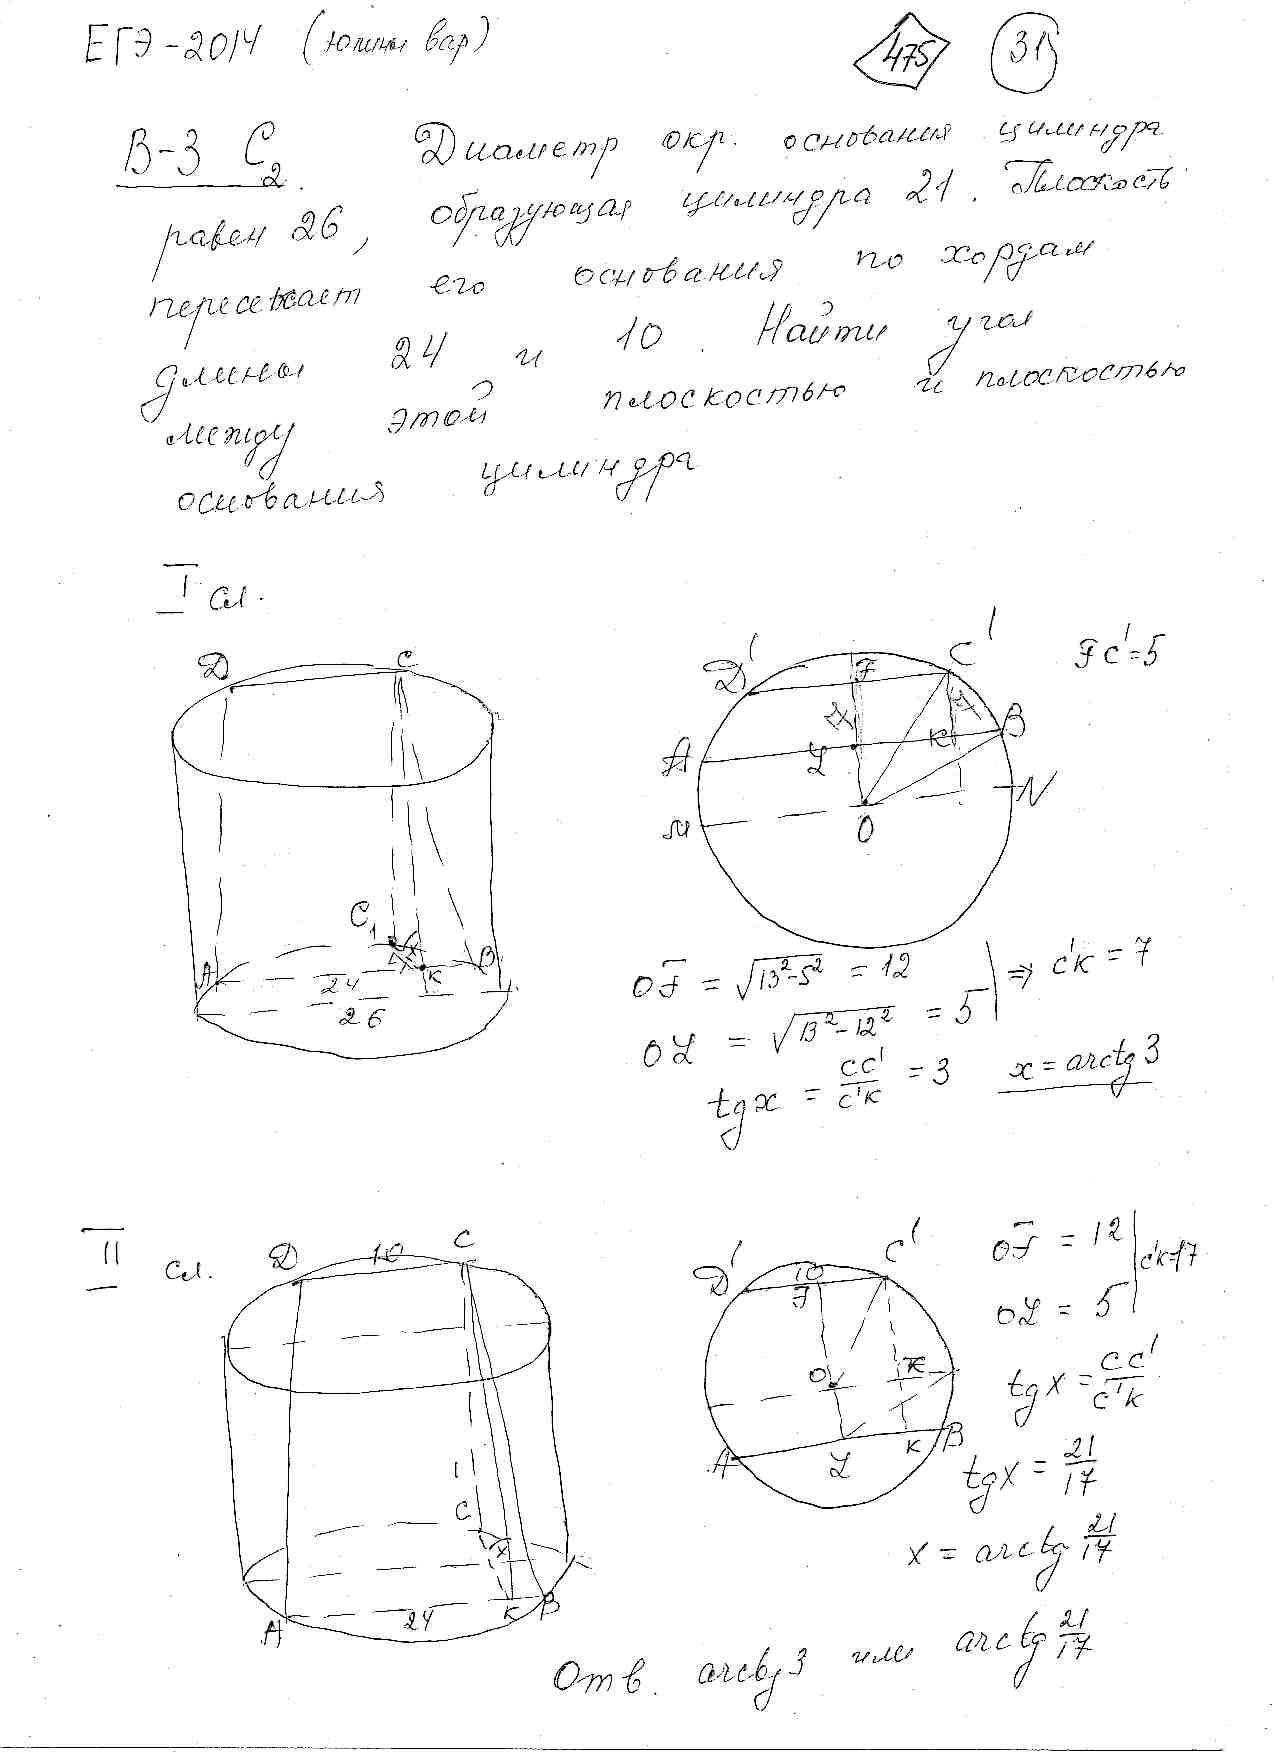 ЕГЭ-2014 (юмны вар)
475 31
В-3 С2. Диаметр окр. основания цилиндра
равен 26, образующая цилиндра 21. Плоскость
пересекает его основания по хордам
длины 24 и 10. Найти угол
между этой плоскостью и плоскостью
основания цилиндра
I сл.
D C
C1
A K B
24
26
D' F C'
A L K B
M O N
FC'=5
OF = √13²-5² = 12
OL = √13²-12² = 5 ⇒ C'K = 7
tgx = CC'/C'K = 3 x = arctg 3
II сл.
D 10 C
C'
x
A 24 K B
D' 10 C'
F
O K
A L K B
OF = 12
OL = 5 C'K=17
tgx = CC'/C'K
tgx = 21/17
x = arctg 21/17
Отв. arctg 3 или arctg 21/17